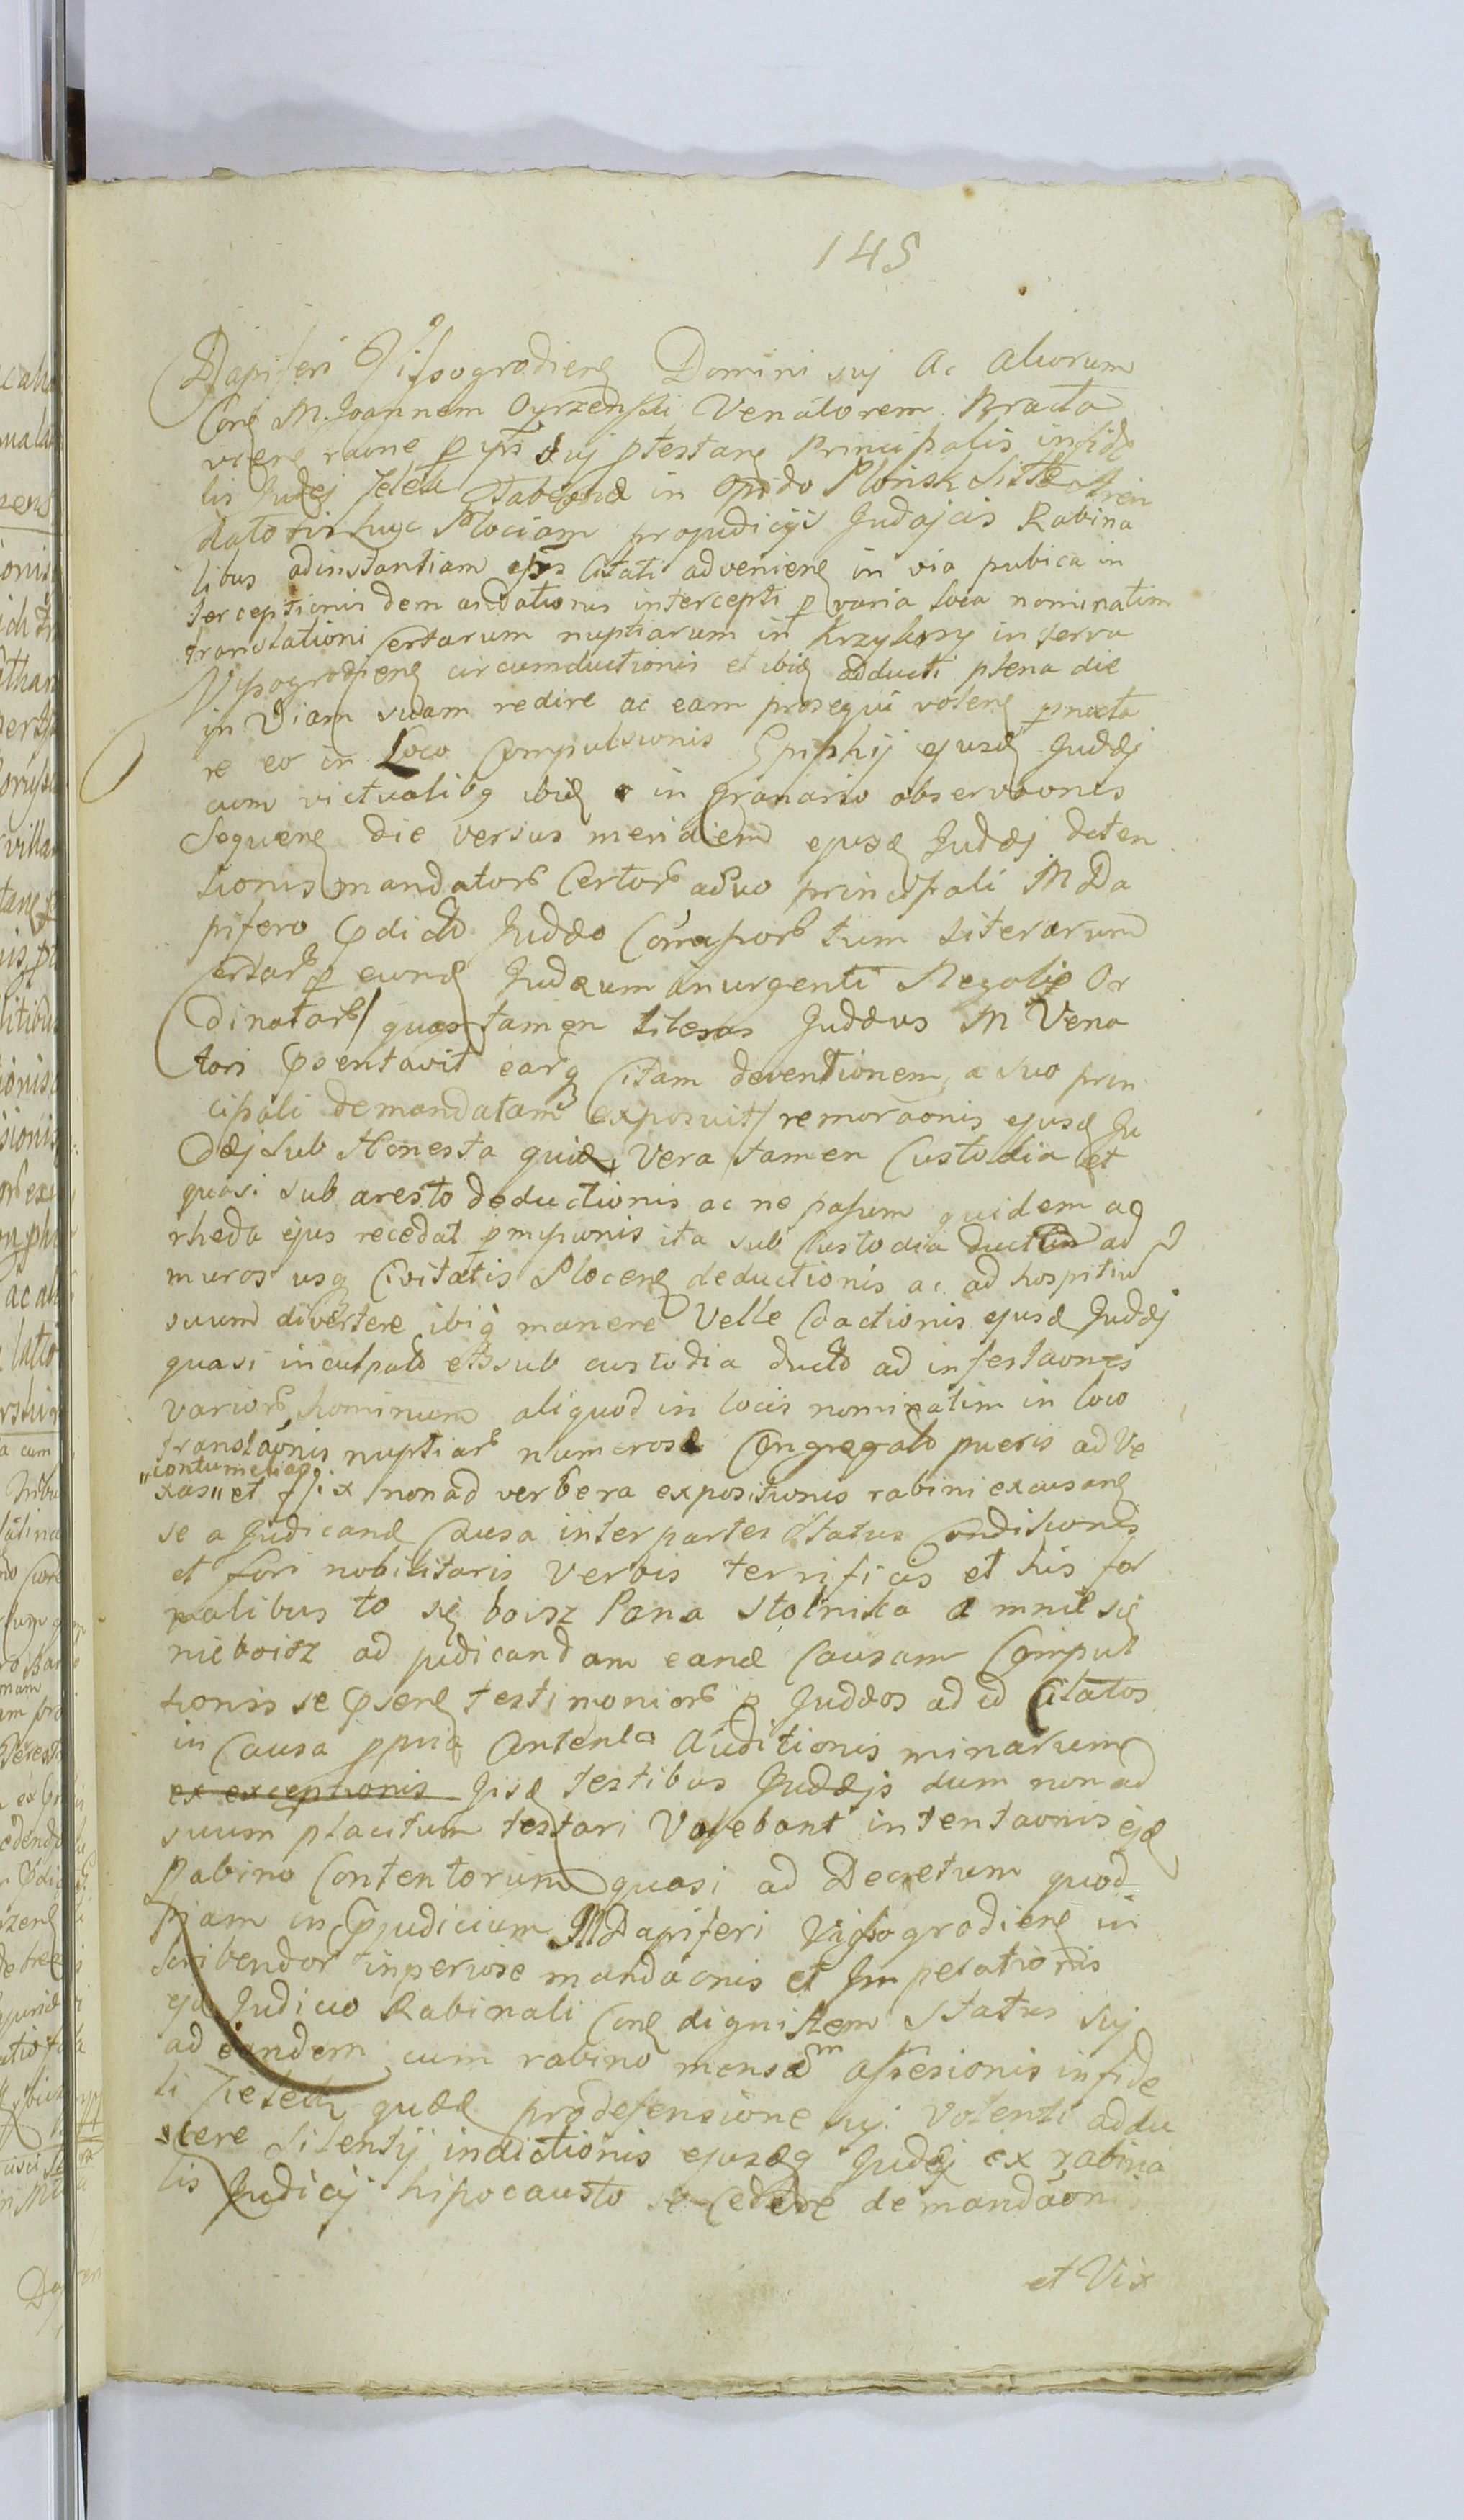 145
Dapiferi Vissogrodien Domini suj Ac aliorum
Con M. Joannem Oyrzenski Venatorem Bracla
vien raone p ips suj ptestan Principalis infide
lis Judej Jelek Taberna in Opido Plonsk sittae Aren
datoris huc Plociam pro judicijs Judajcis Rabina
libus ad instantiam ejus Citati advenien in via pubica in
terceptionis dem andationis intercepti p varia loca nominatim
translationi Certarum nuptiarum in Krzykosy in terra
Vissogrodien circumductionis et ibid adducti plena die
in Viam suam redire ac eam prosequi volen pnocta
re eo in Loco Compulsionis Ephipij ejusd Judaej
cum victualibq ibid in granario observaonis
Sequen die versus meridiem ejusd Judaej deten
tionis mandator Certor ad suo principali M Da
pifero pdicto Judaeo Comrapor tum literarum
certar p eund Judaeum in urgenti Negotio Or
dinatar/ quas tamen literas Judaeus M Vena
tori psentavit earq Citam deventionem a suo prin
cipali demandatam exposuit/ remoraonis ejusd Ju
daej sub Honesta quid, Vera tamen Custodia et
quasi sub aresto deductionis ac ne passum quidem aq
rheda ejus recedat pmissionis ita sub Custodia ad
muros usq Civitatis Plocen deductionis ac ad hospitiu
suum divertere ibiq manere Velle Coactionis ejusd Judaej
quasi inculpato et sub custodia ducto ad infestaones
varior hominum aliquod in locis nominatim in loco
translaonis nuptiar numerose Congregato pueris ad Ve
"contumelias
xas" et non ad verbera expositionis rabini excusan
se a Judicand Causa inter partes Status Conditionis
et fori nobilitaris Verbis terrificis et his for
malibus to się boisz Pana Stolnika a mnie się
nie boisz ad judicandam eand Causam Compul
tionis se psen testimonior p Judaeos ad id Citatos
in Causa ppria Contenta Auditionis minarum
ex exceptionis Jisd testibus Judaejs dum non ad
suum placitum testari Volebant intentaonis ejd
Rabino Contentorum quasi ad Decretum quod
piam in pjudicium M Dapiferi Vissogrodien in
scribendor inperiose mandaonis et Imperationis
ejd Judicio Rabinali Con dignitem Status suj
ad eandem cum rabino mensam assesionis infide
li Jelek quaed pro defensione suj Volenti addu
cere silentij indictionis ejusdq Judaej ex rabina
lis Judicij hipocausto secedere demandaon
et Vix